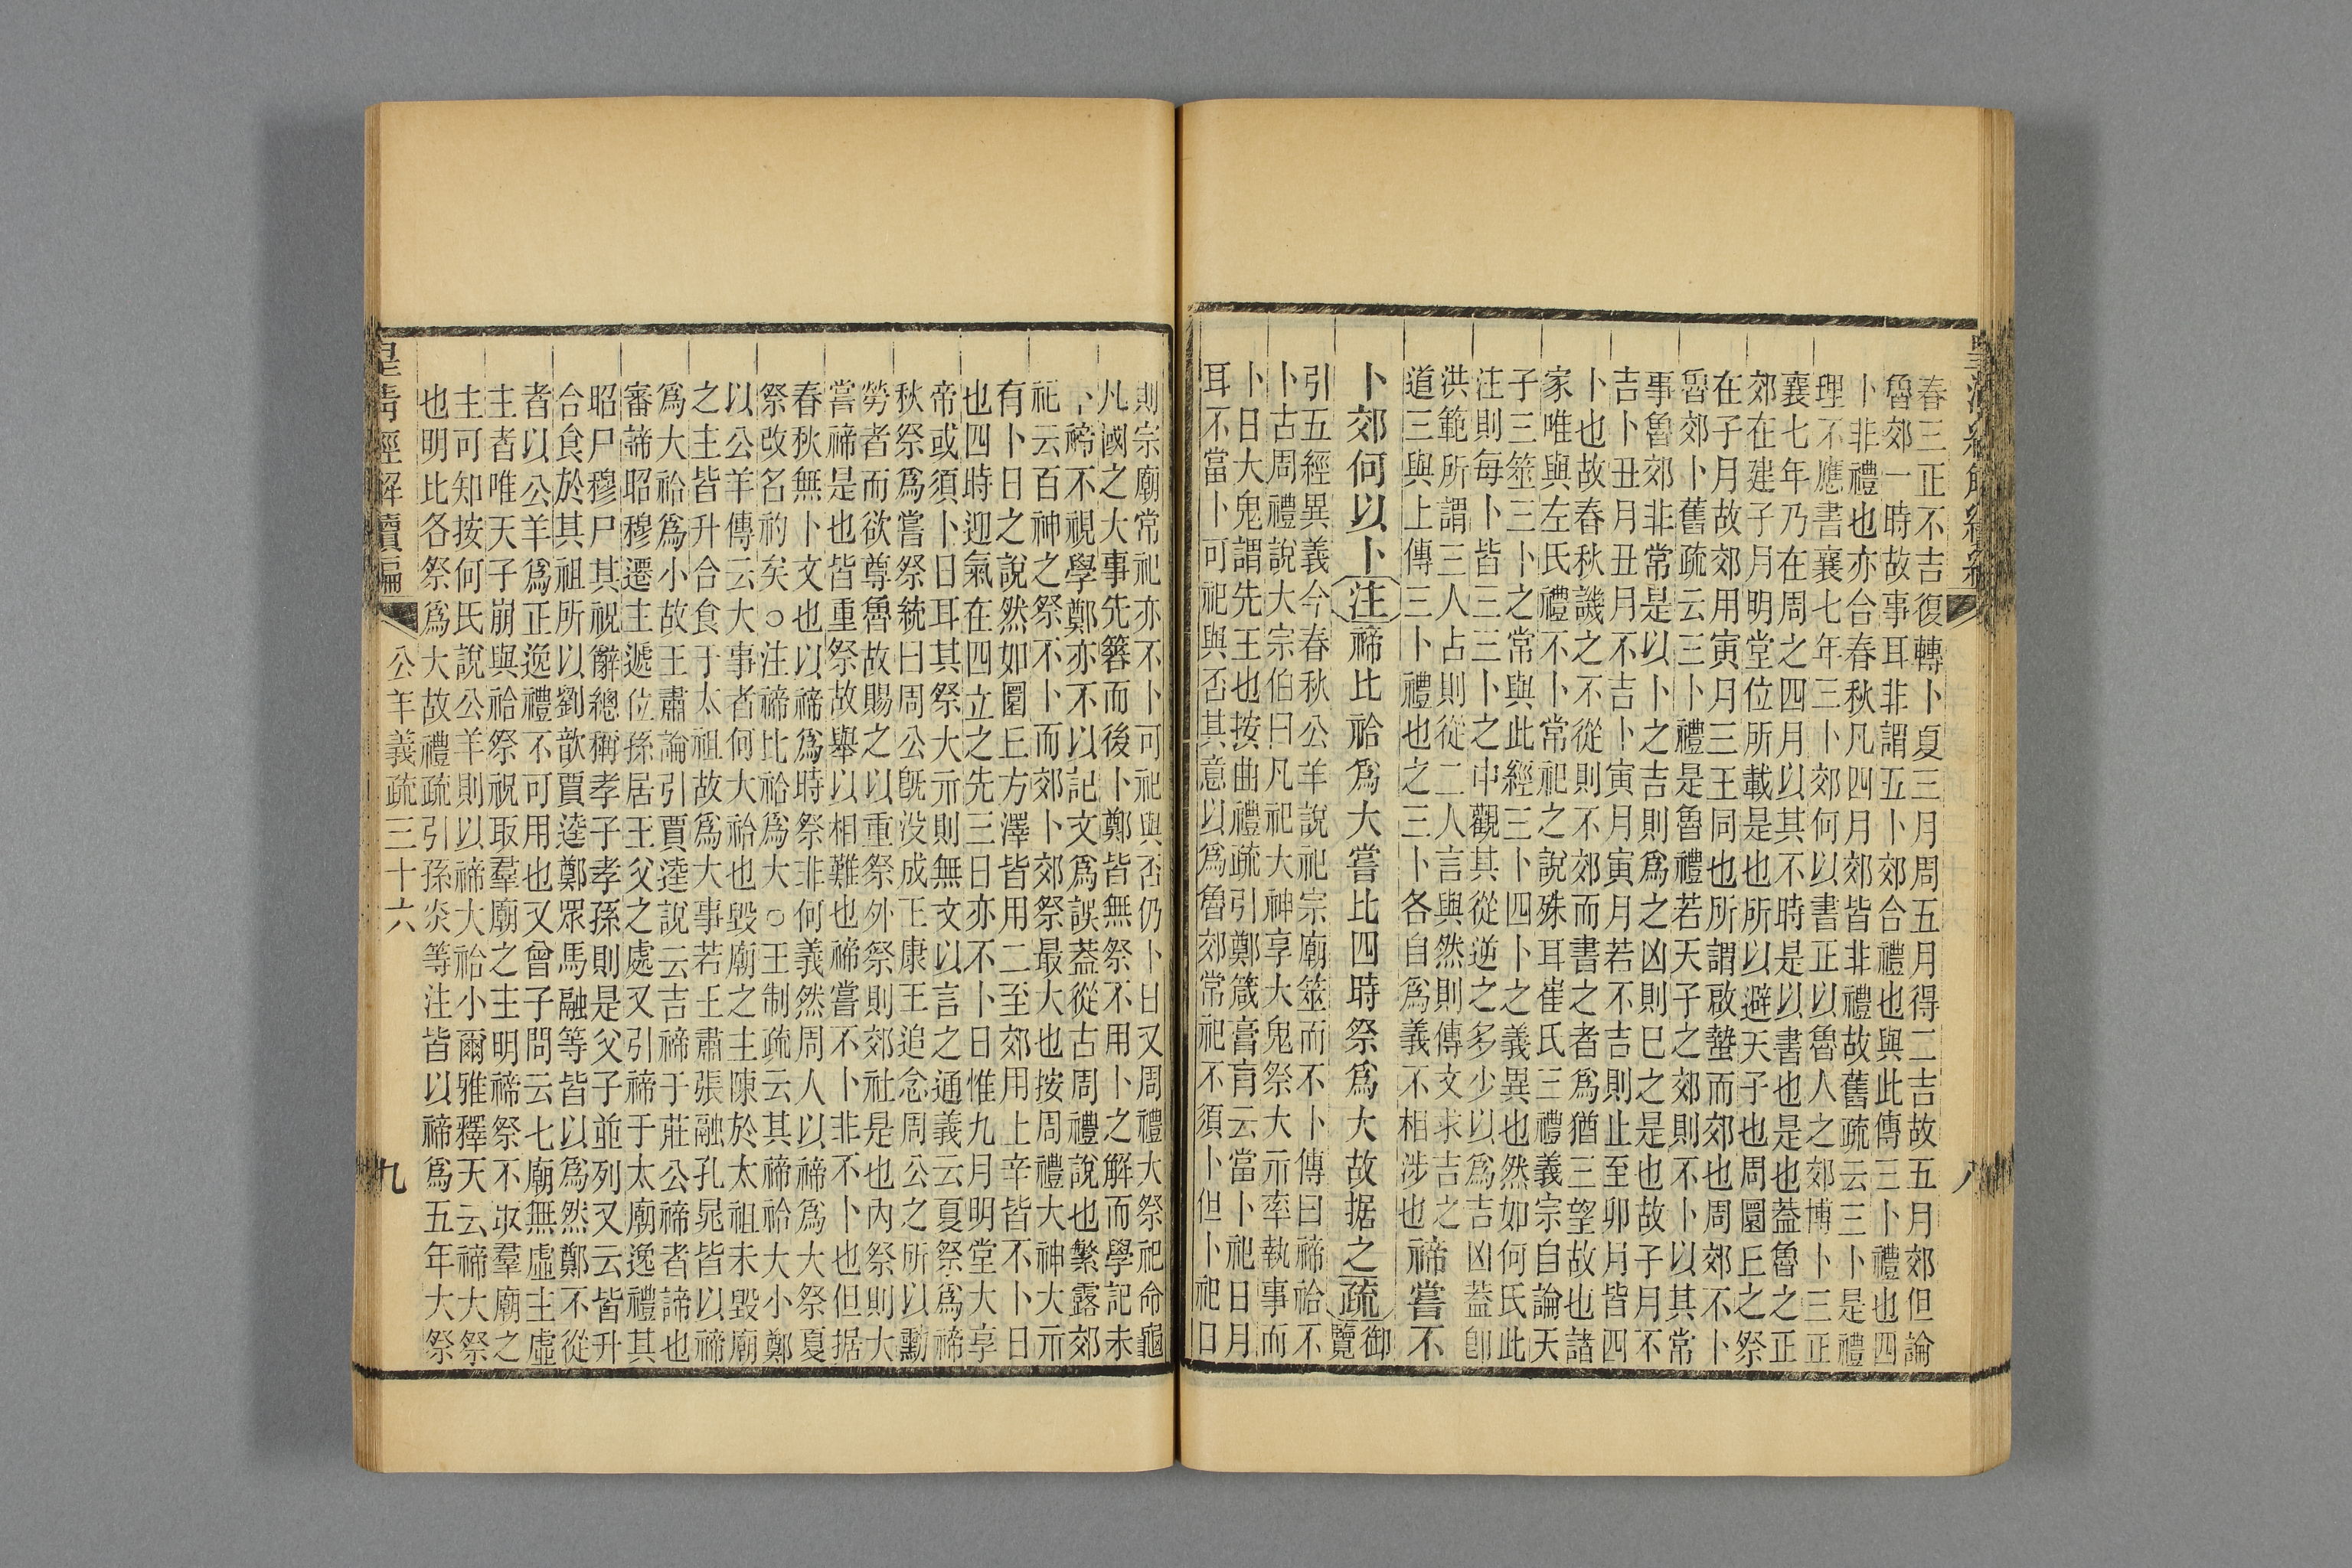 春三正不吉復轉卜夏三月周五月得二吉故五月郊但論
魯郊一時故事耳非謂五卜郊合禮也與此傳三卜禮也四
卜非禮也亦合春秋凡四月郊皆非禮故舊疏云三卜是禮
理不應書襄七年三卜郊何以書正以魯人之郊博卜三正
襄七年乃在周之四月以其不時是以書也是也蓋魯之正
郊在建子月明堂位所載是也所以避天子也周圜丘之祭
在子月故郊用寅月三王同也所謂啟蟄而郊也周郊不卜
魯郊卜舊疏云三卜禮是魯禮若天子之郊則不卜以其常
事魯郊非常是以卜之吉則為之凶則已之是也故子月不
吉卜丑月丑月不吉卜寅月寅月若不吉則止至卯月皆四
卜也故春秋譏之不從則不郊而書之者為猶三望故也諸
家唯與左氏禮不卜常祀之說殊耳崔氏三禮義宗自論天
子三筮三卜之常與此經三卜四卜之義異也然如何氏此
注則每卜皆三三卜之中觀其從逆之多少以為吉凶蓋卽
洪範所謂三人占則從二人言與然則傳文求吉之
道三與上傳三卜禮也之三卜各自為義不相涉也
禘嘗不
卜郊何以卜
注
禘比祫為大嘗比四時祭為大故据之
疏
御
覽
引五經異義今春秋公羊說祀宗廟筮而不卜傳曰禘祫不
卜古周禮說大宗伯曰凡祀大神享大鬼祭大示率執事而
卜日大鬼謂先王也按曲禮疏引鄭箴膏肓云當卜祀日月
耳不當卜可祀與否其意以為魯郊常祀不須卜但卜祀日
則宗廟常祀亦不卜可祀與否仍卜日又周禮大祭祀命龜
凡國之大事先簭而後卜鄭皆無祭不用卜之解而學記未
卜禘不視學鄭亦不以記文為誤蓋從古周禮說也繁露郊
祀云百神之祭不卜而郊卜郊祭最大也按周禮大神大示
有卜日之說然如圜丘方澤皆用二至郊用上辛皆不卜日
也四時迎氣在四立之先三日亦不卜日惟九月明堂大享
帝或須卜日耳其祭大示則無文以言之通義云夏祭為禘
秋祭為嘗祭統曰周公旣没成王康王追念周公之所以勳
勞者而欲尊魯故賜之以重祭外祭則郊社是也內祭則大
嘗禘是也皆重祭故舉以相難也禘嘗不卜非不卜也但据
春秋無卜文也以禘為時祭非何義然周人以禘為大祭夏
祭改名礿矣○注禘比祫為大○王制疏云其禘祫大小鄭
以公羊傳云大事者何大祫也毀廟之主陳於太祖未毀廟
之主皆升合食于太祖故為大事若王肅張融孔晁皆以禘
為大祫為小故王肅論引賈逵說云吉禘于莊公禘者諦也
審諦昭穆遷主遞位孫居王父之處又引禘于太廟逸禮其
昭尸穆尸其祝辭總稱孝子孝孫則是父子並列又云皆升
合食於其祖所以劉歆賈逵鄭眾馬融等皆以為然鄭不從
者以公羊為正逸禮不可用也又曾子問云七廟無虛主虛
主者唯天子崩與祫祭祝取羣廟之主明禘祭不取羣廟之
主可知按何氏說公羊則以禘大祫小爾雅釋天云禘大祭
也明比各祭為大故禮疏引孫炎等注皆以禘為五年大祭
皇清經解續編
公羊義疏三十六
九